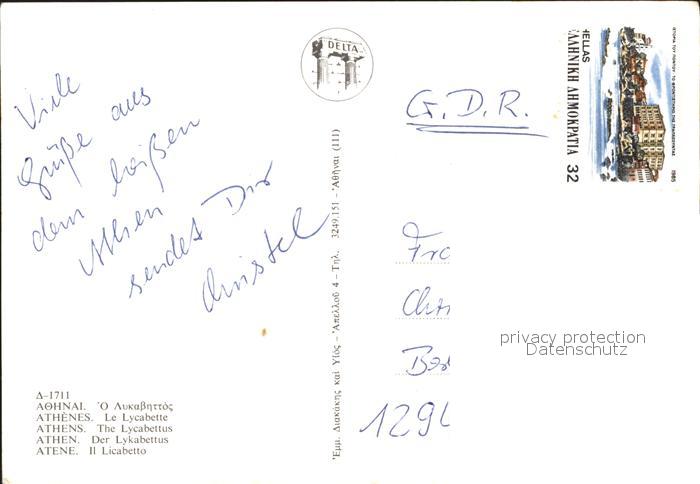 Viele
Grüße aus
dem heißen
Athen
sendet Dir
Christel
Δ-1711
ΑΘΗΝΑΙ. Ὁ Λυκαβηττός
ATHÈNES. Le Lycabette
ATHENS. The Lycabettus
ATHEN. Der Lykabettus
ATENE. Il Licabetto
DELTA
Ἐμμ. Διακάκης καὶ Υἱός – Ἀπελλοῦ 4 – Τηλ. 3249.151 - Ἀθῆναι (111)
G.D.R.
HELLAS
ΕΛΛΗΝΙΚΗ ΔΗΜΟΚΡΑΤΙΑ 32
1985
Fra
Chri
Ber
129
privacy protection
Datenschutz